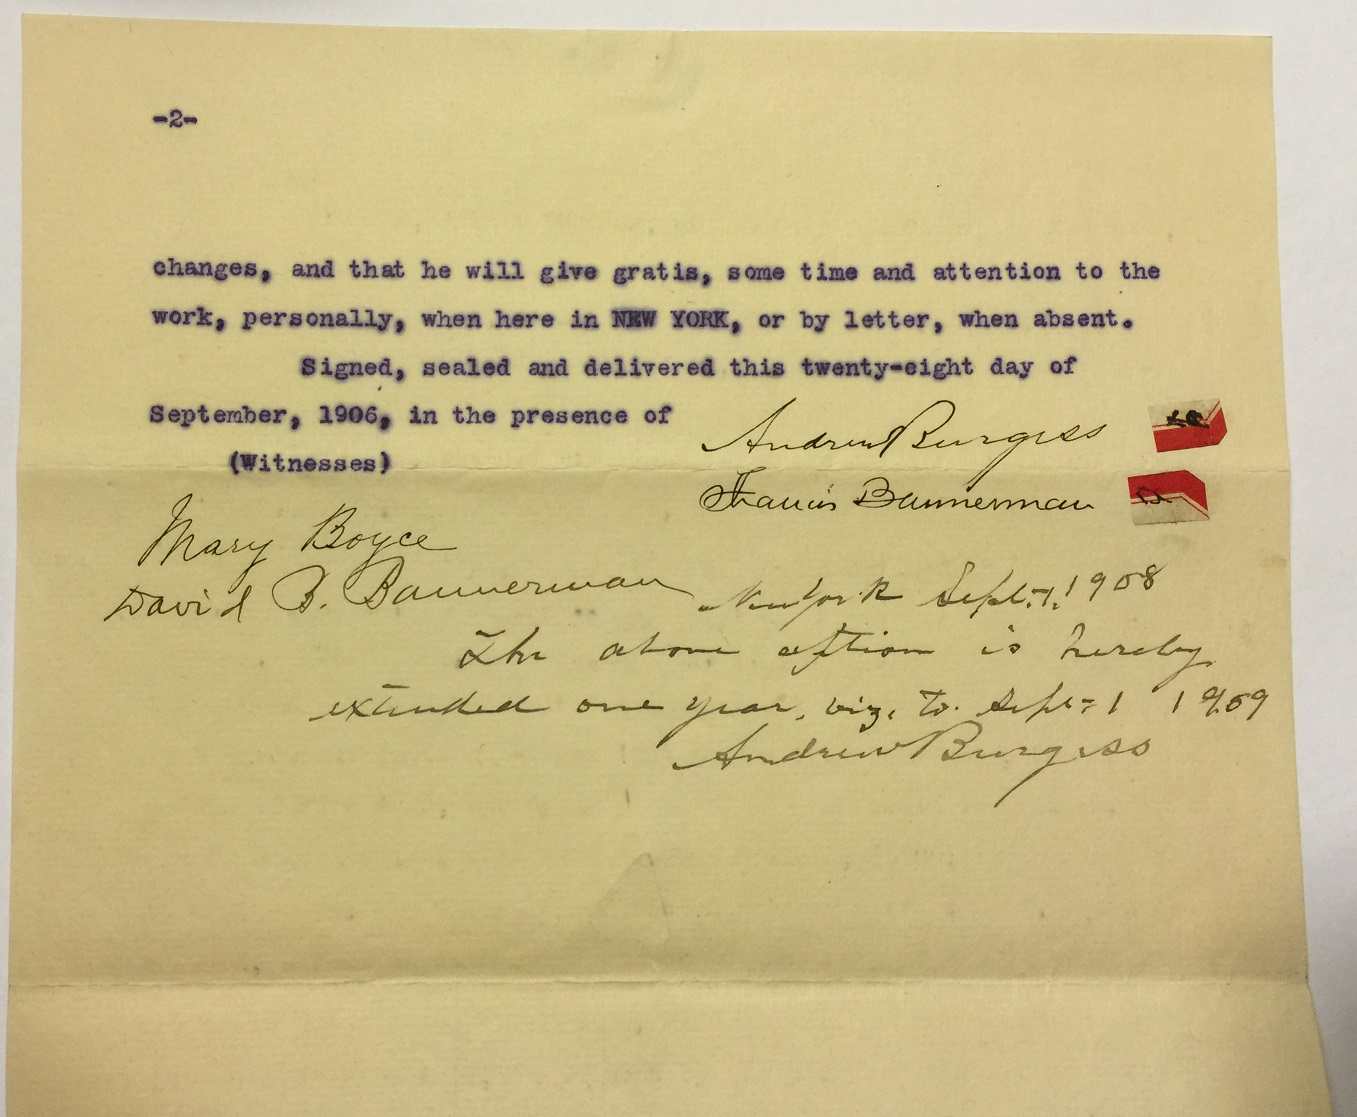 -2-
changes, and that he will give gratis, some time and attention to the
work, personally, when here in NEW YORK, or by letter, when absent.
Signed, sealed and delivered this twenty-eight day of
September, 1906, in the presence of
(Witnesses)
Andrew Burgess
Francis Bannerman
Mary Boyce
David B. Bannerman
New York Sept. 1. 1908
The above option is hereby
extended one year, viz, to Sept = 1 1909
Andrew Burgess